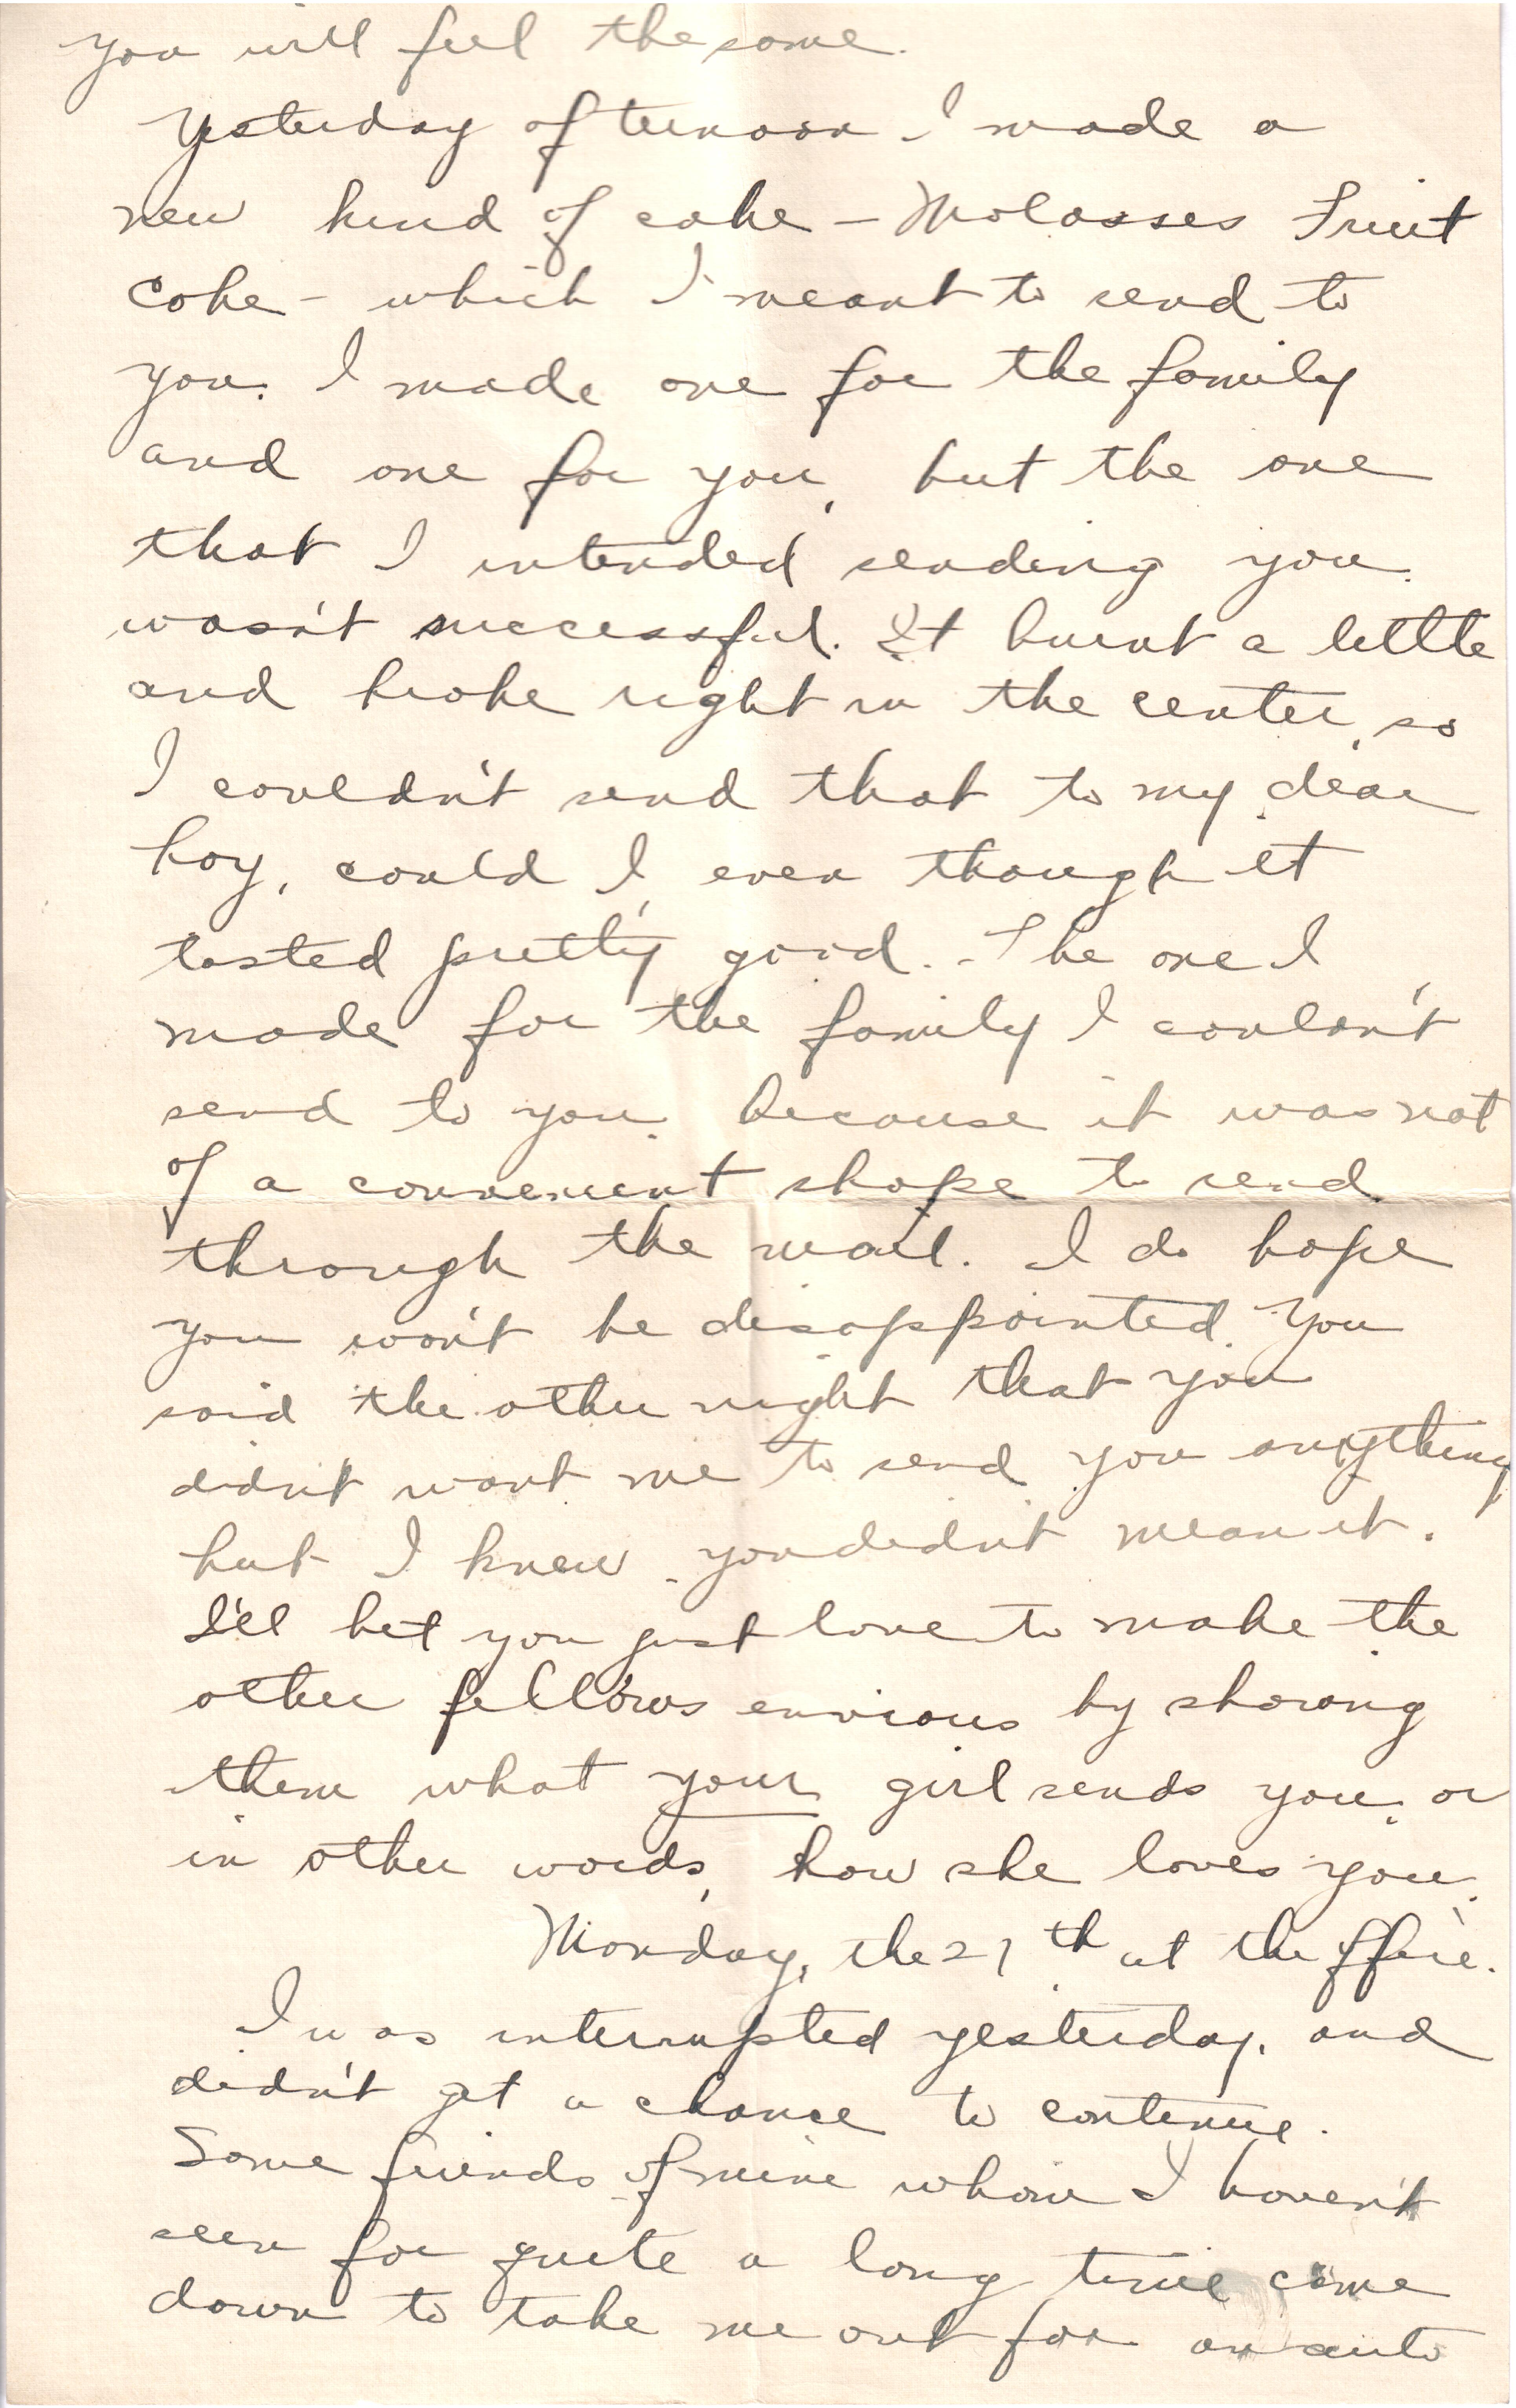 you will feel the same.
Yesterday afternoon I made a
new kind of cake - Molasses Fruit
Cake - which I meant to send to
you. I made one for the family
and one for you, but the one
that I intended sending you
wasn't successful. It burnt a little
and broke right in the center, so
I couldn't send that to my dear
boy, could I, even though it
tasted pretty good. The one I
made for the family I couldn't
send to you because it was not
of a convenient shape to send
through the mail. I do hope
you won't be disappointed. You
said the other night that you
didn't want me to send you anything
but I knew you didn't mean it.
I'll bet you just love to make the
other fellows envious by showing
them what your girl sends you, or
in other words, how she loves you.
Monday, the 27th at the office.
I was interrupted yesterday, and
didn't get a chance to continue.
Some friends of mine whom I haven't
seen for quite a long time came
down to take me out for an auto